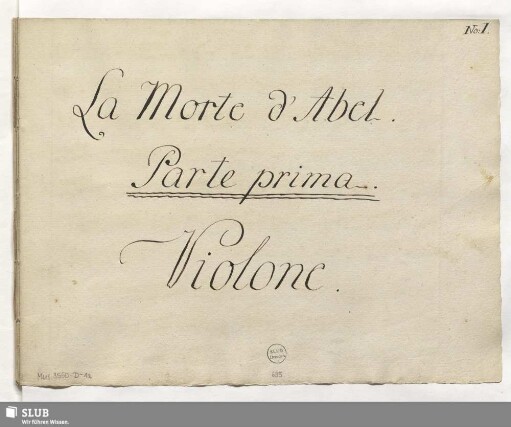 No: 1.
La Morte d'Abel.
Parte prima.
Violone.
SLUB
635
SLUB
Wir führen Wissen.